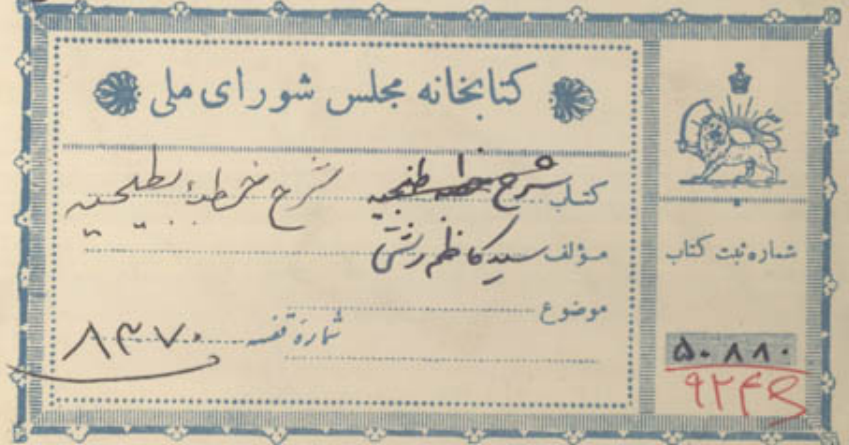 کتابخانه مجلس شورای ملی
کتاب شرح خطبه طتنجیه شرح خطبه تطنجیه
مؤلف سید کاظم رشتی
موضوع
شماره قفسه ۸۳۷۰
شماره ثبت کتاب
۵۰۸۸۰
۹۲۴